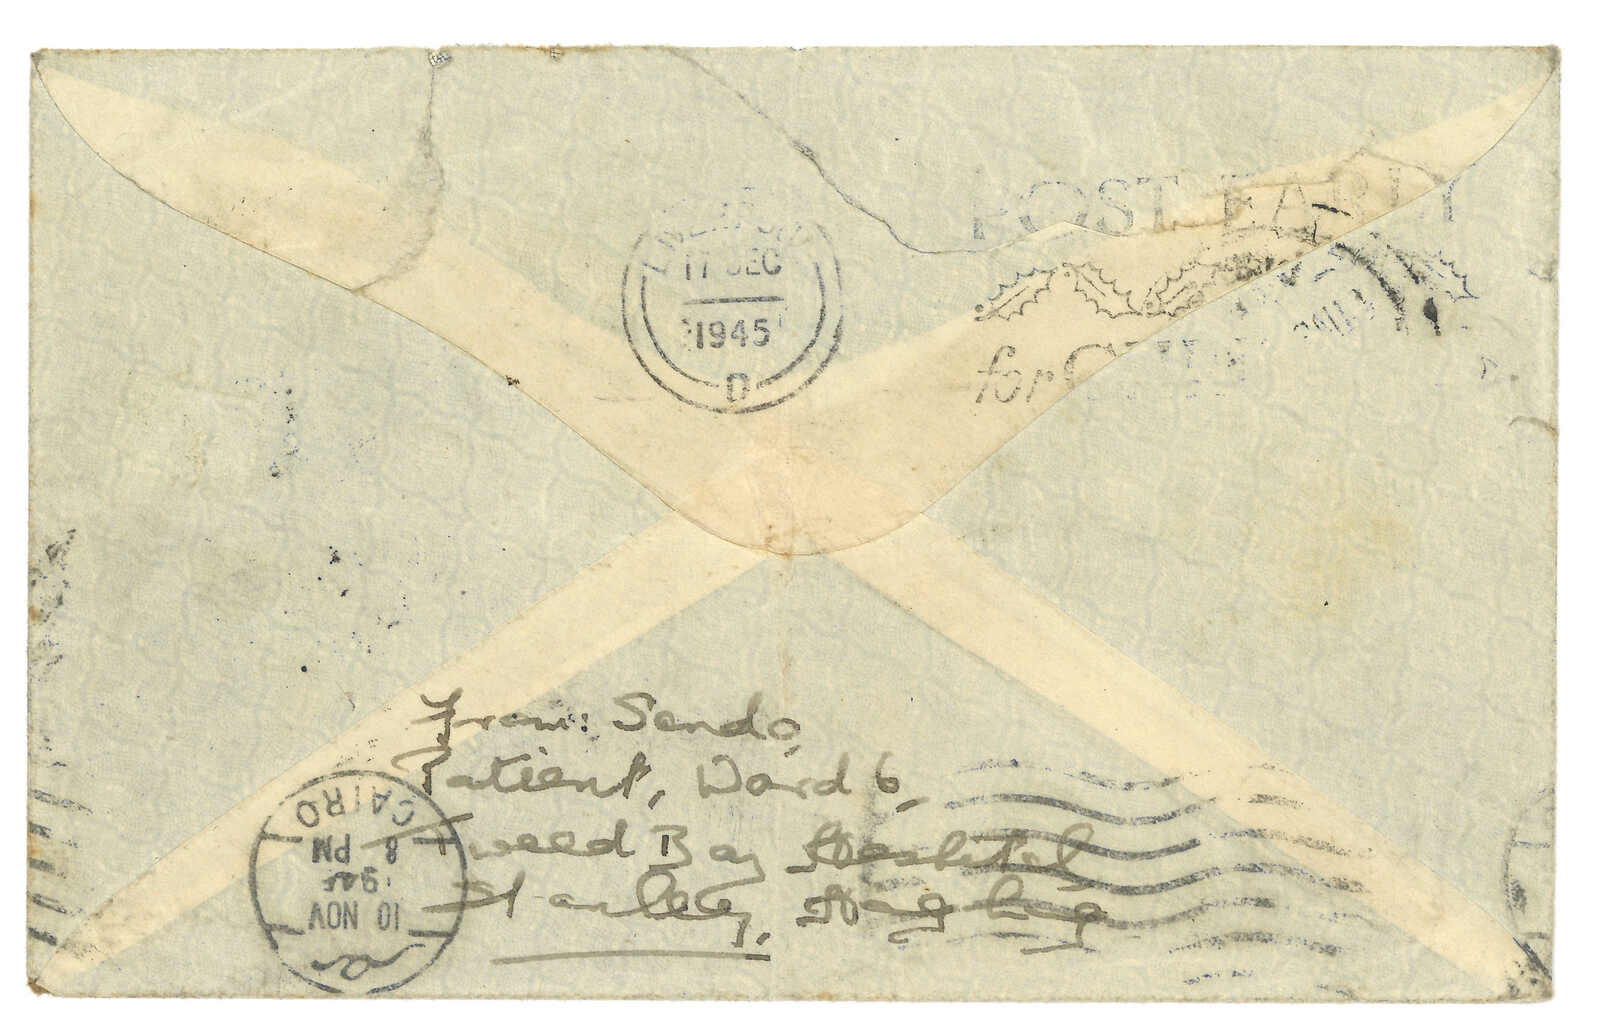 POST EARLY
17 DEC
1945
D
for
From: Sendo,
Patient, Ward 6,
Tweed Bay Hospital
Stanley, Hongkong
CAIRO
8 PM
10 NOV